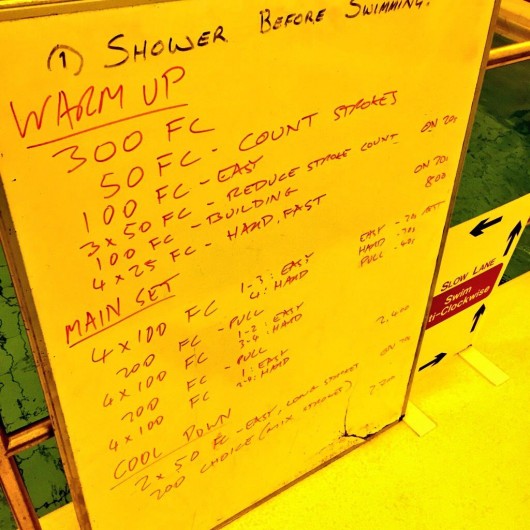 ① SHOWER BEFORE SWIMMING.
WARM UP
300 FC
50 FC - COUNT STROKES
100 FC - EASY
3 x 50 FC - REDUCE STROKE COUNT ON 20s
100 FC - BUILDING
4 x 25 FC - HARD, FAST ON 20s
800
MAIN SET
4 x 100 FC 1-3: EASY EASY - 20s
4: HARD HARD - 30s
200 FC - PULL PULL - 40s
4 x 100 FC 1-2: EASY
3-4: HARD
200 FC - PULL
4 x 100 FC 1: EASY
2-4: HARD 2,400
COOL DOWN
2 x 50 FC - EASY, LONG STROKES ON 20s
200 CHOICE (MIX STROKES)
SLOW LANE
Swim
ti-Clockwise